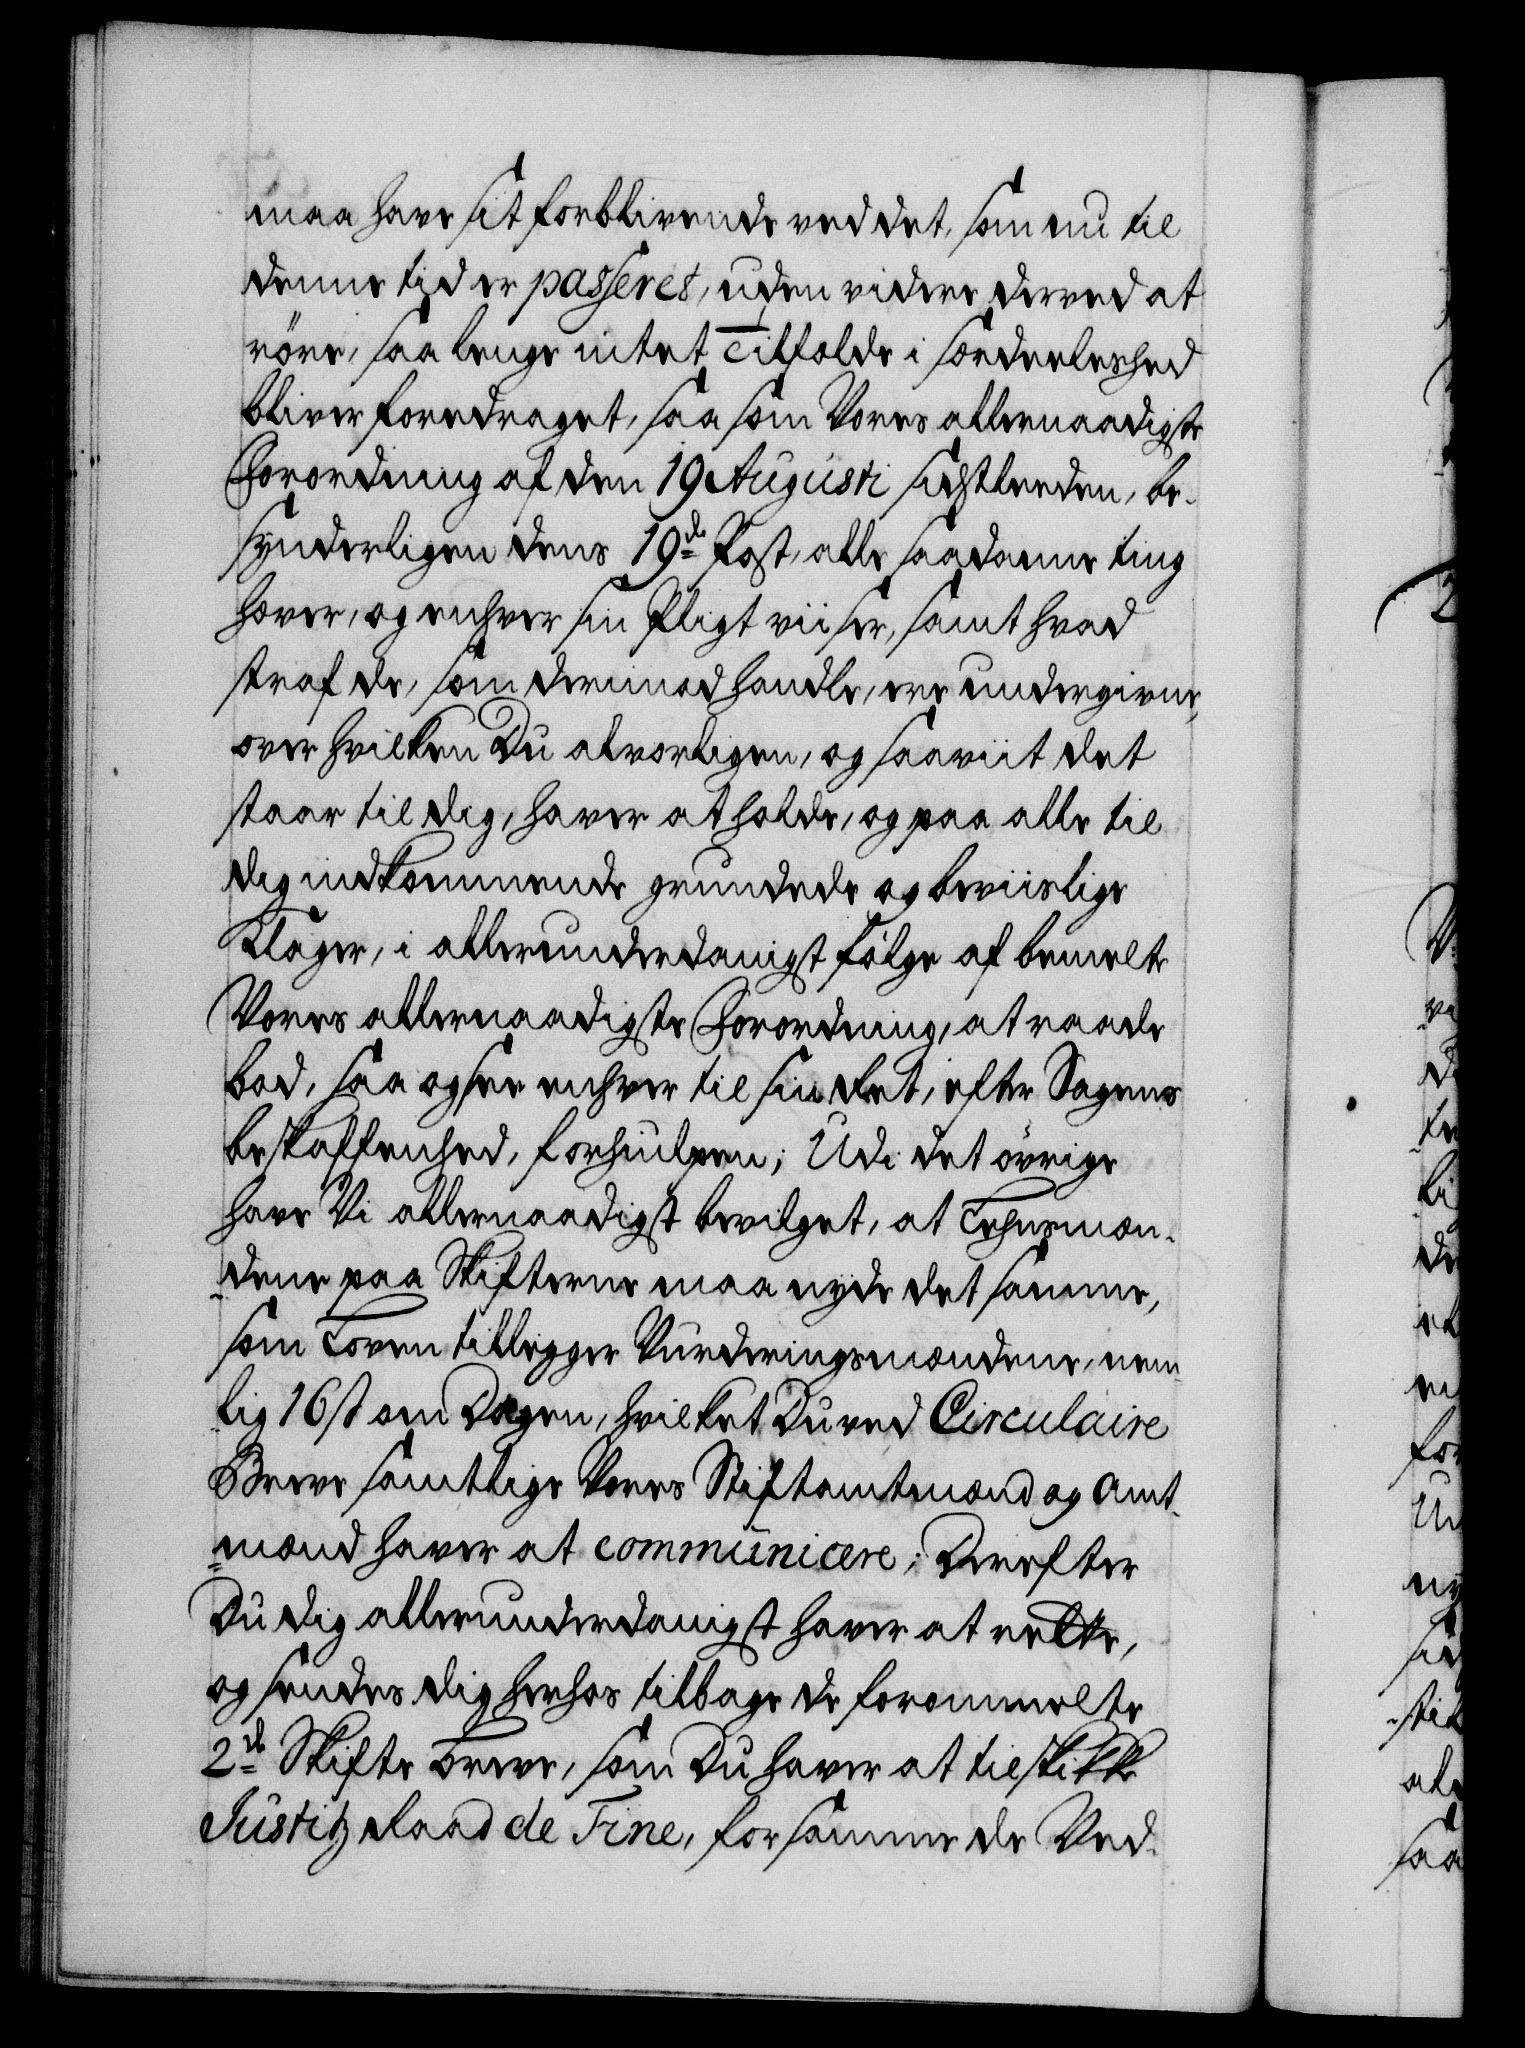 maa have sit forblivende ved det, som nu til
denne tid er passeret, uden videre derved at
röre, saa lenge intet Tilfelde i særdeleshed
bliver foredraget, saa som Vores allernaadigste
Forordning af den 19 Augusti sidstleeden, be-
synderligen dens 19de Post, alle saadanne ting
hæver, og enhver sin Pligt viiser, samt hvad
straf de, som derimod handle, ere undergivne,
over hvilken Du alvorligen, og saaviit det
staar til dig, haver at holde, og paa alle til
dig indkommende grundede og beviislige
Klager, i allerunderdanigst fölge af bemelte
Vores allernaadigste Forordning, at raade
bod, saa og see enhver til sin Ret, efter Sagens
beskaffenhed, forhiulpen; Udi det övrige
have Vi allernaadigst bevilget, at Lehnsmæn-
dene paa Skifterne maa nyde det samme,
som Loven tillegger Vurderingsmændene, nem-
lig 16 s om Dagen, hvilket Du ved Circulaire
Breve samtlige Vores Stiftamtmænd og Amt-
mænd haver at communicere; Derefter
Du dig allerunderdanigst haver at rette,
og sendes dig herhos tilbage de forommelte
2de Skifte Breve, som Du haver at tilstikke
Justitz Raad de Fine, for samme de Ved-